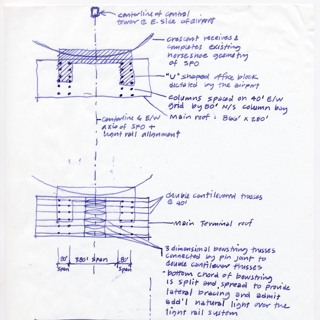 centerline of control
tower @ E. side of airport
crescent receives &
completes existing
horseshoe geometry
of SFO
"U" shaped office block
dictated by the airport
columns spaced on 40' E/W
grid by 80' N/S column bay
Main roof: 860' x 280'
centerline @ E/W
axis of SFO +
light rail alignment
double cantilevered trusses
@ 40'
Main Terminal roof
80' 380' span 80'
span span
3 dimensional bowstring trusses
connected by pin joint to
double cantilever trusses
- bottom chord of bowstring
is split and spread to provide
lateral bracing and admit
add'l natural light over the
light rail system